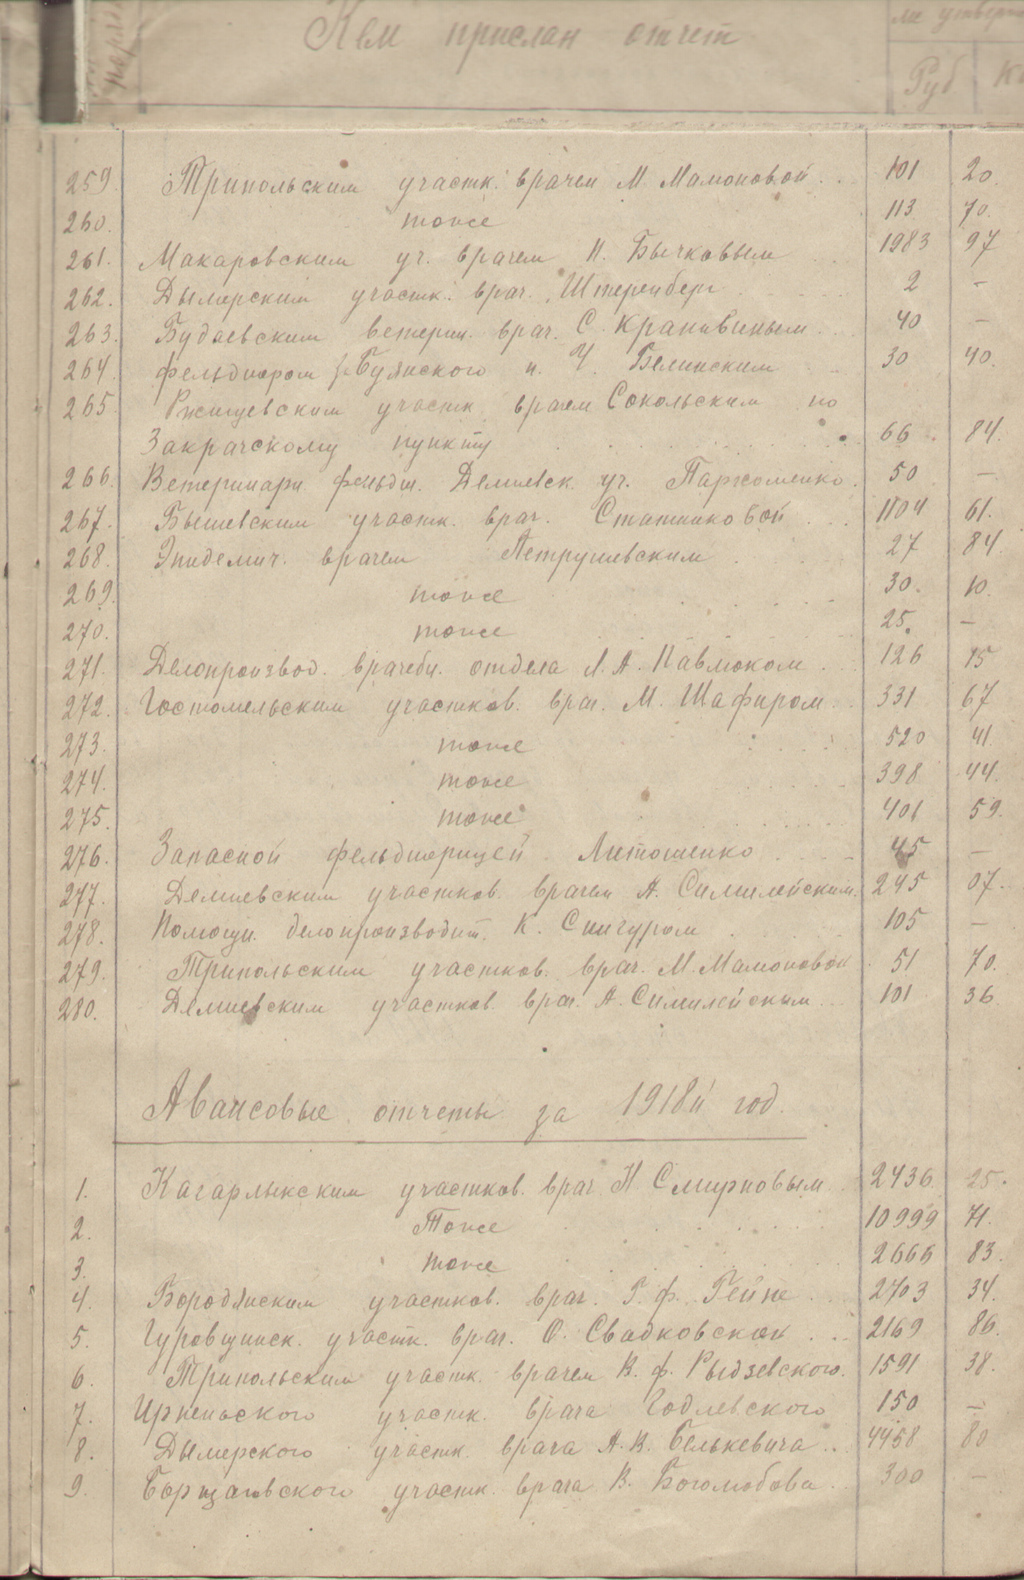 Кем прислан отчет
Руб
259. Трипольским участк. врачем М. Мамоновой 101 20.
260. тоже 113 70.
261. Макаровским уч. врачем П. Бычковым 1983 97
262. Дымерским участк. врач. Штеренберг 2 –
263. Будаевским ветерин. врач. С. Крапивиным 40 –
264. фельдшером Буянского п. Ч. Белинским 30 40.
265. Ржищевским участк. врачем Сокольским по
Закрачскому пункту 66 84.
266. Ветеринарн. фельдш. Демиевск. уч. Пархоменко. 50 –
267. Бышевским участк. врач. Статниковой 1104 61.
268. Эпидемич. врачем Петрушевским 27 84.
269. тоже 30. 10.
270. тоже 25. –
271. Делопроизвод. врачебн. отдела Л. А. Павлюком 126 15
272. Гостомельским участков. врач. М. Шафиром 331 67
273. тоже 520 41
274. тоже 398 44.
275. тоже 401 59.
276. Запасной фельдшерицей Литошенко 45 –
277. Демиевским участков. врачем А. Симилейским 245 07.
278. Помощн. делопроизводит. К. Снигуром 105 –
279. Трипольским участков. врач. М. Мамоновой 51 70.
280. Демиевским участков. врач. А. Симилейским 101 36
Авансовые отчеты за 1918й год.
1. Кагарлыкским участков. врач. Н. Смирновым 2436 25.
2. Тоже 10999 71.
3. тоже 2666 83.
4. Бородянским участков. врач. Г. Ф. Гейне 2703 34.
5. Гуровщинск. участк. врач. О. Свадковской 2169 86.
6. Трипольским участк. врачем В. Ф. Рыдзевского. 1591 38.
7. Ирпеньского участк. врача Годлевского 150 –
8. Дымерского участк. врача А. В. Белькевича 4458 80
9. Борщаговского участк. врача В. Боголюбова 300 –